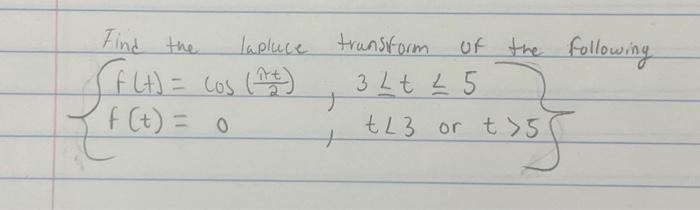 Find the lapluce transform of the following
f(t) = cos (πt/2) , 3 ≤ t ≤ 5
f(t) = 0 , t < 3 or t > 5